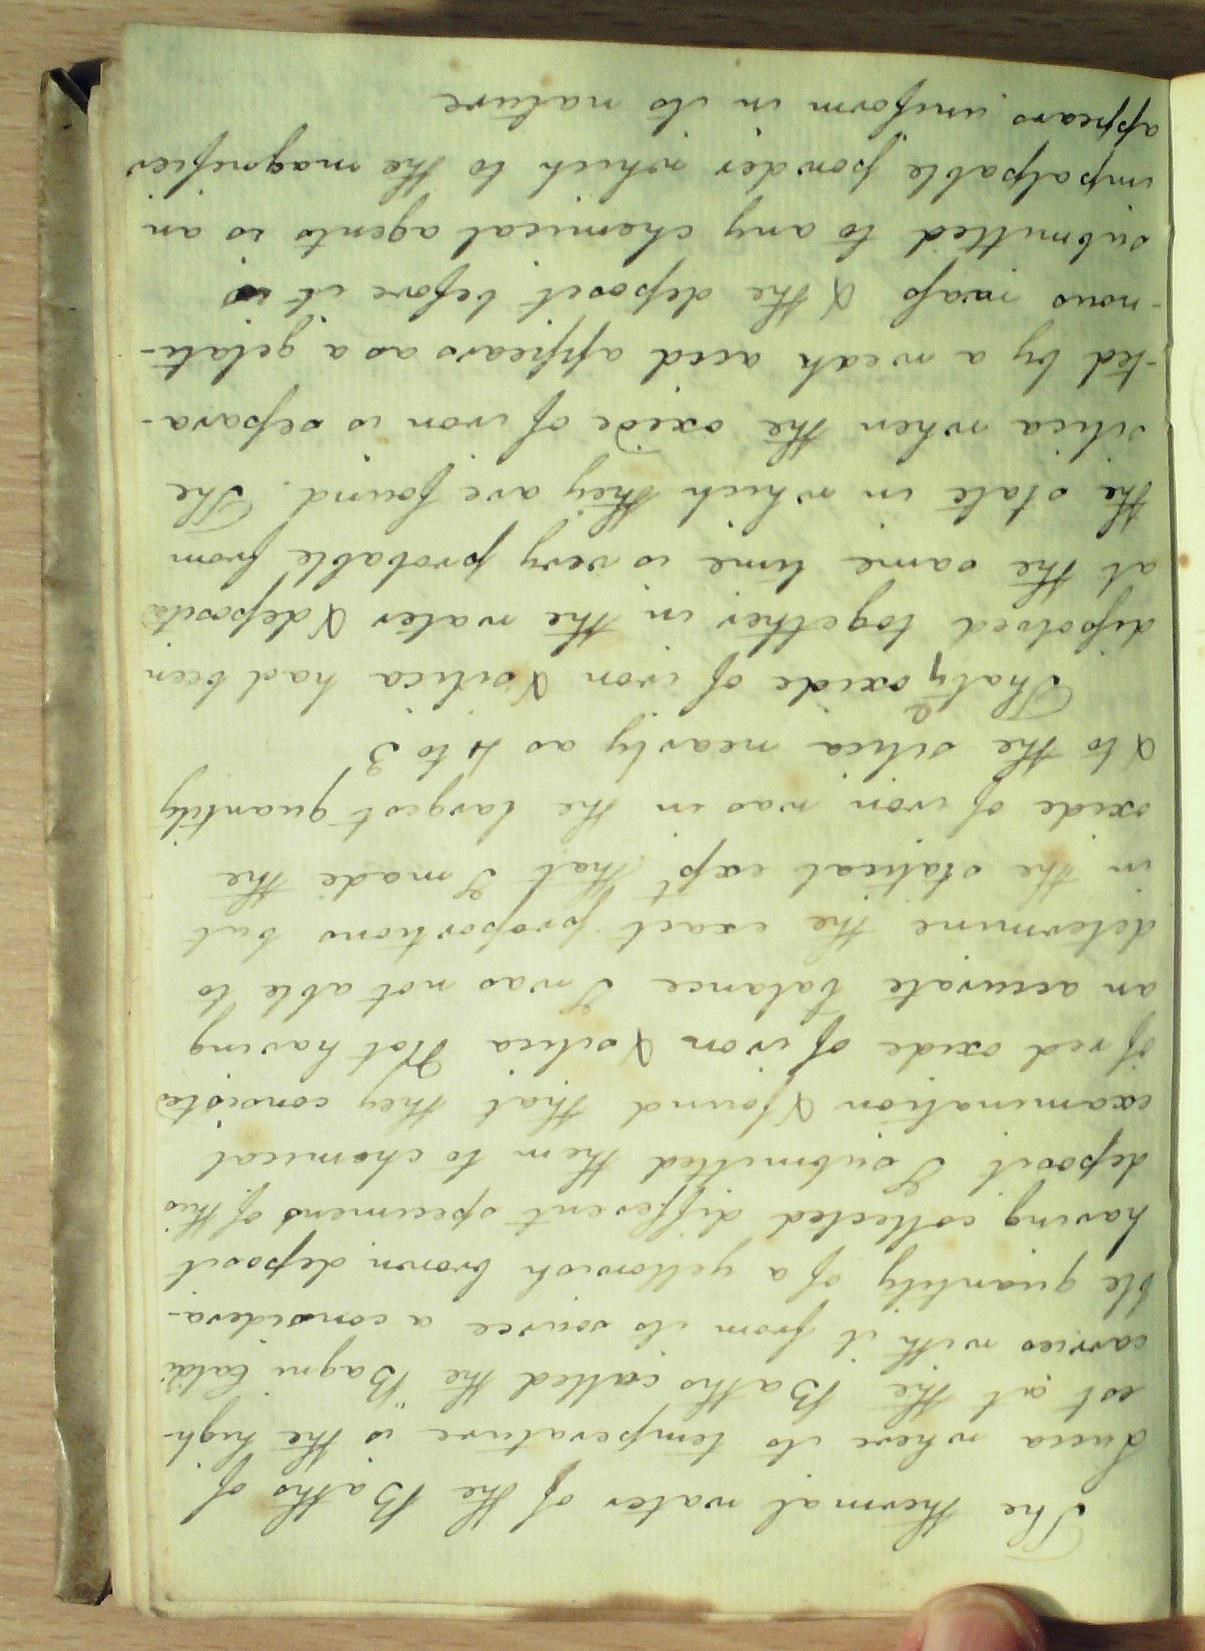 The thermal water of the Baths of
Lucca where its temperature is the high-
est at the Baths called the "Bagni Caldi
carries with it from its source a considera-
ble quantity of a yellowish brown deposit
having collected different specimens of this
deposit I submitted them to chemical
examination & found that they consists
of red oxide of iron & silica Not having
an accurate balance I was not able to
determine the exact proportions but
in the statical expt that I made the
oxide of iron was in the largest quantity
& to the silica nearly as 4 to 3.
That oxide of iron & silica had been
dissolved together in the water & deposited
at the same time is very probable from
the state in which they are found. The
silica when the oxide of iron is separa-
-ted by a weak acid appears as a gelati-
-nous mass & the deposit before it is
submitted to any chemical agents is an
impalpable powder which to the magnifier
appears uniform in its nature